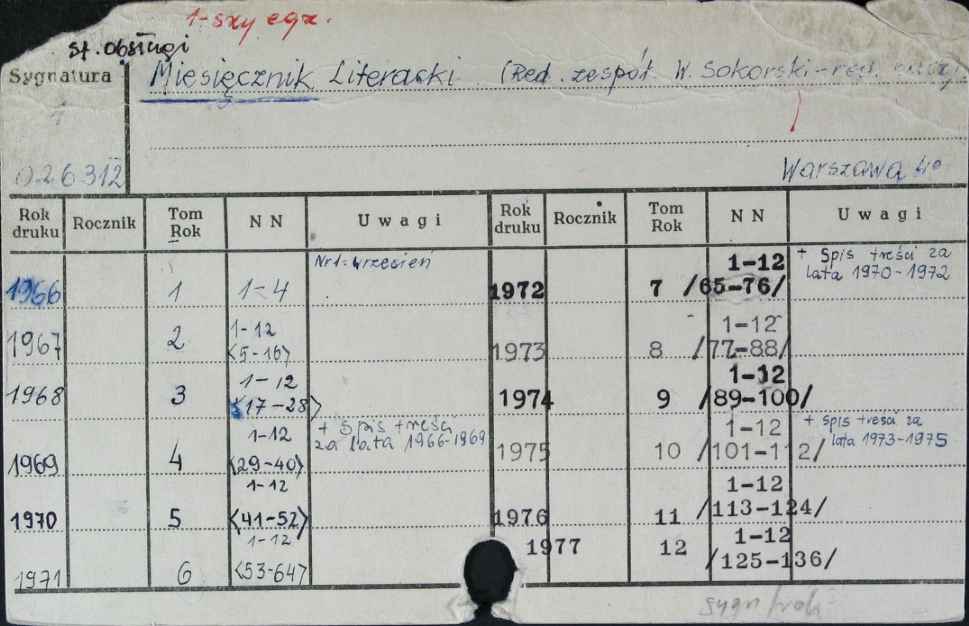 1-szy egz.
st. obsługi
Sygnatura
Miesięcznik Literacki (Red. zespół. W. Sokorski - red.
026312
Warszawa 4°
Rok druku Rocznik Tom Rok NN Uwagi Rok druku Rocznik Tom Rok NN Uwagi
1966 1 1-4 Nr 1 = wrzesień
1967 2 1-12 <5-16>
1968 3 1-12 <17-28>
1969 4 1-12 <29-40> + Spis treści za lata 1966-1969
1970 5 1-12 <41-52>
1971 6 1-12 <53-64>
1972 7 1-12 /65-76/ + Spis treści za lata 1970-1972
1973 8 1-12 /77-88/
1974 9 1-12 /89-100/
1975 10 1-12 /101-112/ + Spis treści za lata 1973-1975
1976 11 1-12 /113-124/
1977 12 1-12 /125-136/
sygn/rok